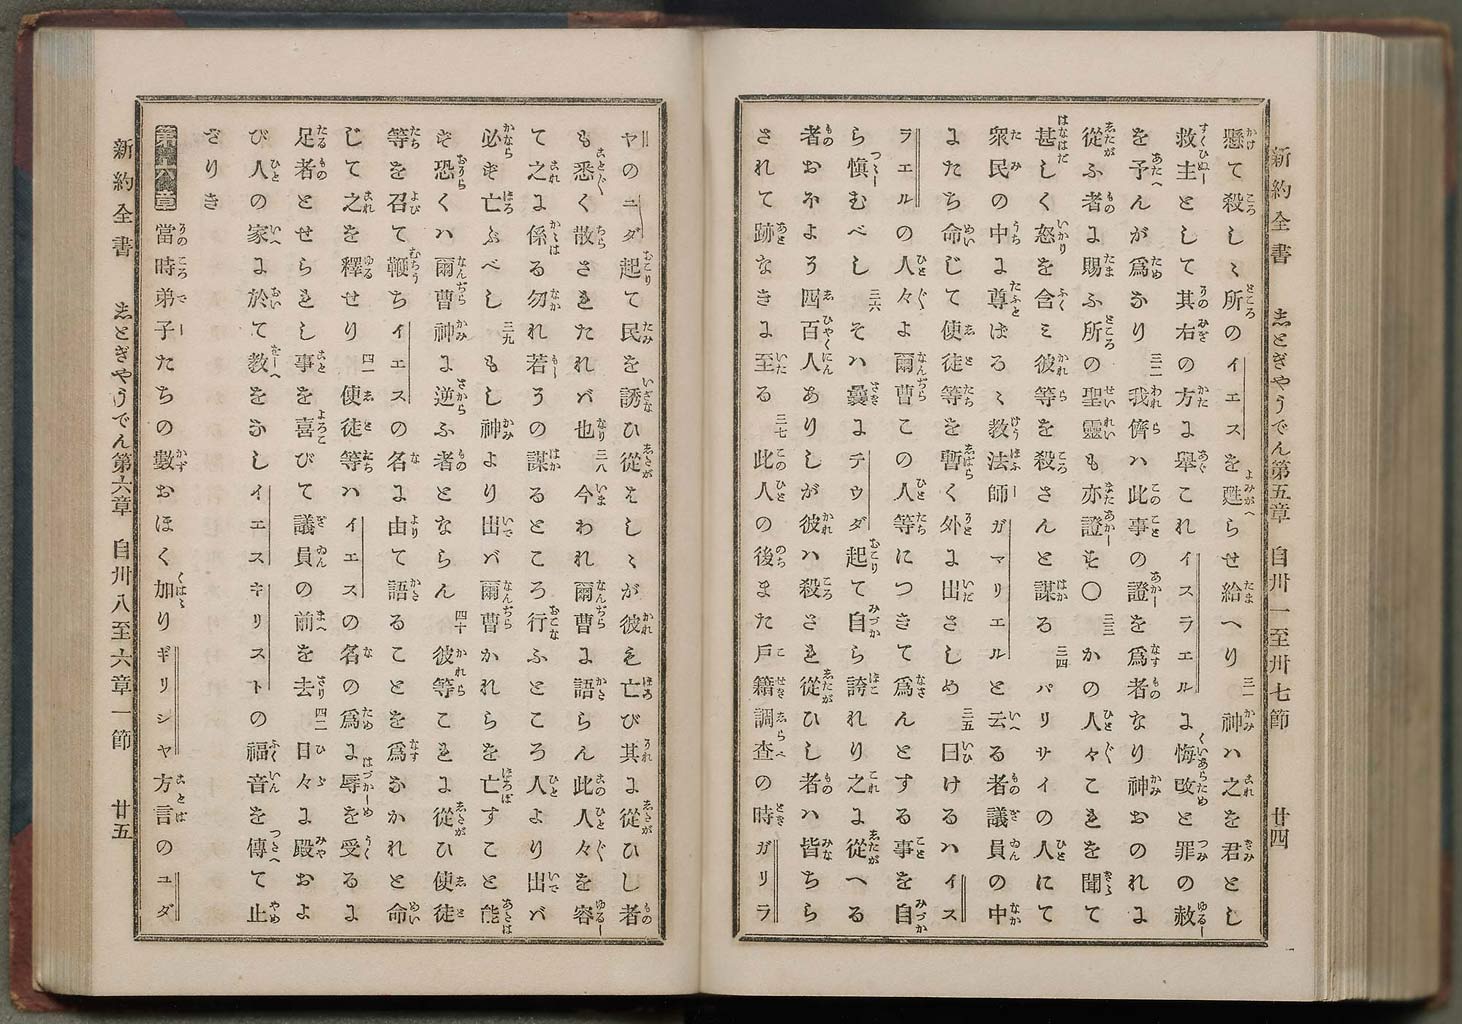 新約全書　志とぎやうでん第五章　自卅一至卅七節　廿四
懸て殺しゝ所のイエスを甦らせ給へり 三一 神ハ之を君とし
救主として其右の方ょ舉これイスラエルょ悔改と罪の赦
を予んが爲なり 三二 我儕ハ此事の證を爲者なり神おのれょ
從ふ者ょ賜ふ所の聖靈も亦證を〇 三三 かの人々これを聞て
甚しく怒を含ミ彼等を殺さんと謀る 三四 パリサイの人にて
衆民の中ょ尊はるゝ教法師ガマリエルと云る者議員の中
ょたち命じて使徒等を暫く外ょ出さしめ 三五 曰けるハイス
ラエルの人々よ爾曹この人等につきて爲んとする事を自
ら愼むべし 三六 そハ曩ょテウダ起て自ら誇れり之ょ從へる
者おおよそ四百人ありしが彼ハ殺され從ひし者ハ皆ちら
されて跡なきょ至る 三七 此人の後また戸籍調査の時ガリラ
ヤのユダ起て民を誘ひ從はしゝが彼も亡び其ょ從ひし者
も悉く散されたれバ也 三八 今われ爾曹ょ語らん此人々を容
て之ょ係る勿れ若その謀るところ行ふところ人より出バ
必ず亡ぶべし 三九 もし神より出バ爾曹かれらを亡すこと能
ず恐くハ爾曹神ょ逆ふ者とならん 四十 彼等これょ從ひ使徒
等を召て鞭ちイエスの名ょ由て語ることを爲なかれと命
じて之を釋せり 四一 使徒等ハイエスの名の爲ょ辱を受るょ
足者とせられし事を喜びて議員の前を去 四二 日々ょ殿およ
び人の家ょ於て教をなしイエスキリストの福音を傳て止
ざりき
第六章 當時弟子たちの數おほく加りギリシヤ方言のユダ
新約全書　志とぎやうでん第六章　自卅八至六章一節　廿五